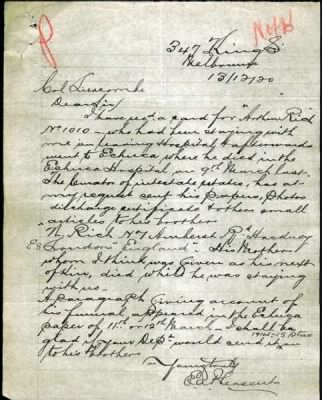 347 King St
Melbourne
13/12/20
Col Luscombe
Dear Sir
I have rec'd a card for "Arthur Rich
No 1010 - who had been staying with
me on leaving Hospital & afterwards
went to Echuca where he died in the
Echuca Hospital on 9th March last.
The Curator of intestate estates, has at
my request sent his papers, photos
discharge certificate & other small
articles to his brother
N. Rich No 7 Amherst Rd Hackney
E8 London "England" His Mother,
whom I think was given as his next
of kin, died while he was staying
with us.
A paragraph giving account of
his funeral appeared in the Echuca
paper of 11th or 12th March - I shall be
glad if your Dept would send 1914-15 Star
to his brothers
Yours truly